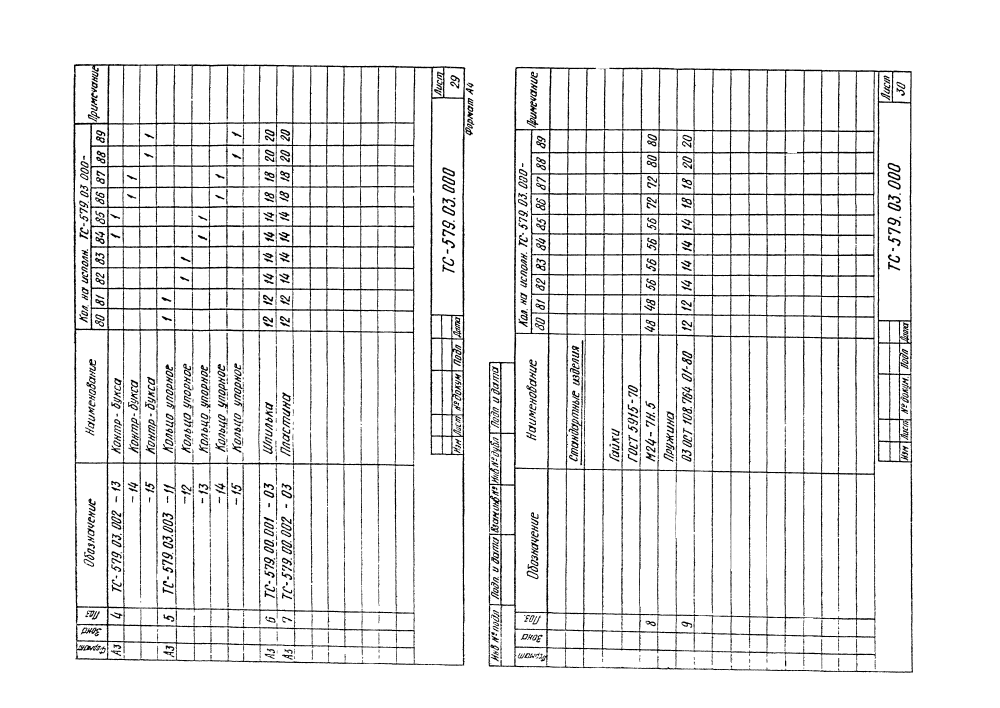 Формат Зона Поз. Обозначение Наименование Кол. на исполн. ТС-579.03.000- Примечание
80 81 82 83 84 85 86 87 88 89
А3 4 ТС-579.03.002 -13 Контр-букса 1 1
-14 Контр-букса 1 1
-15 Контр-букса 1 1
А3 5 ТС-579.03.003 -11 Кольцо упорное 1 1
-12 Кольцо упорное 1 1
-13 Кольцо упорное 1 1
-14 Кольцо упорное 1 1
-15 Кольцо упорное 1 1
А3 6 ТС-579.00.001 -03 Шпилька 12 12 14 14 14 14 18 18 20 20
А3 7 ТС-579.00.002 -03 Пластина 12 12 14 14 14 14 18 18 20 20
Изм Лист № докум Подп Дата
ТС-579.03.000
Лист
29
Формат А4
Инв № подл Подп. и дата Взам инв № Инв № дубл Подп. и дата
Формат Зона Поз. Обозначение Наименование Кол. на исполн. ТС-579.03.000- Примечание
80 81 82 83 84 85 86 87 88 89
Стандартные изделия
Гайки
ГОСТ 5915-70
8 М24-7Н.5 48 48 56 56 56 56 72 72 80 80
Пружина
9 03 ОСТ 108.764.01-80 12 12 14 14 14 14 18 18 20 20
Изм Лист № докум. Подп Дата
ТС-579.03.000
Лист
30